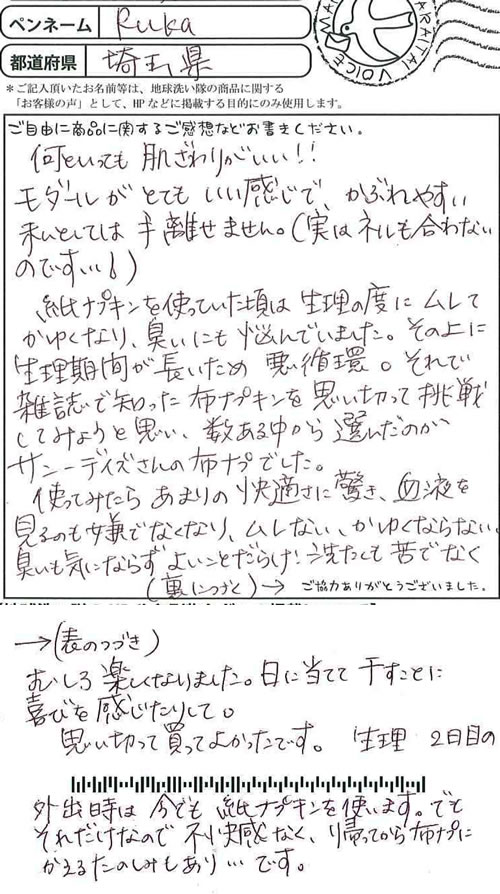 ペンネーム Ruka
都道府県 埼玉県
＊ご記入頂いたお名前等は、地球洗い隊の商品に関する
「お客様の声」として、HPなどに掲載する目的にのみ使用します。
ご自由に商品に関するご感想などお書きください。
何といっても 肌ざわりがいい!!
モダールが とても いい感じで、かぶれやすい
私としては 手離せません。(実はネルも合わない
のです…!)
紙ナプキンを使っていた頃は 生理の度に ムレて
かゆくなり、臭いにも 悩んでいました。その上に
生理期間が長いため 悪循環。それで
雑誌で知った 布ナプキンを 思い切って 挑戦
してみようと思い、数ある中から 選んだのが
サニーデイズさんの布ナプでした。
使ってみたら あまりの 快適さに 驚き、血液を
見るのも嫌でなくなり、ムレない、かゆくならない。
臭いも気にならず よいことだらけ! 洗たくも 苦でなく
(裏につづく)→ ご協力ありがとうございました。
→(表のつづき)
むしろ 楽しくなりました。日に当てて 干すことに
喜びを 感じたりして。
思い切って 買ってよかったです。 生理 2日目の
外出時は 今でも 紙ナプキンを使います。でも
それだけなので 不快感なく、帰ってから布ナプに
かえるたのしみもあり…です。